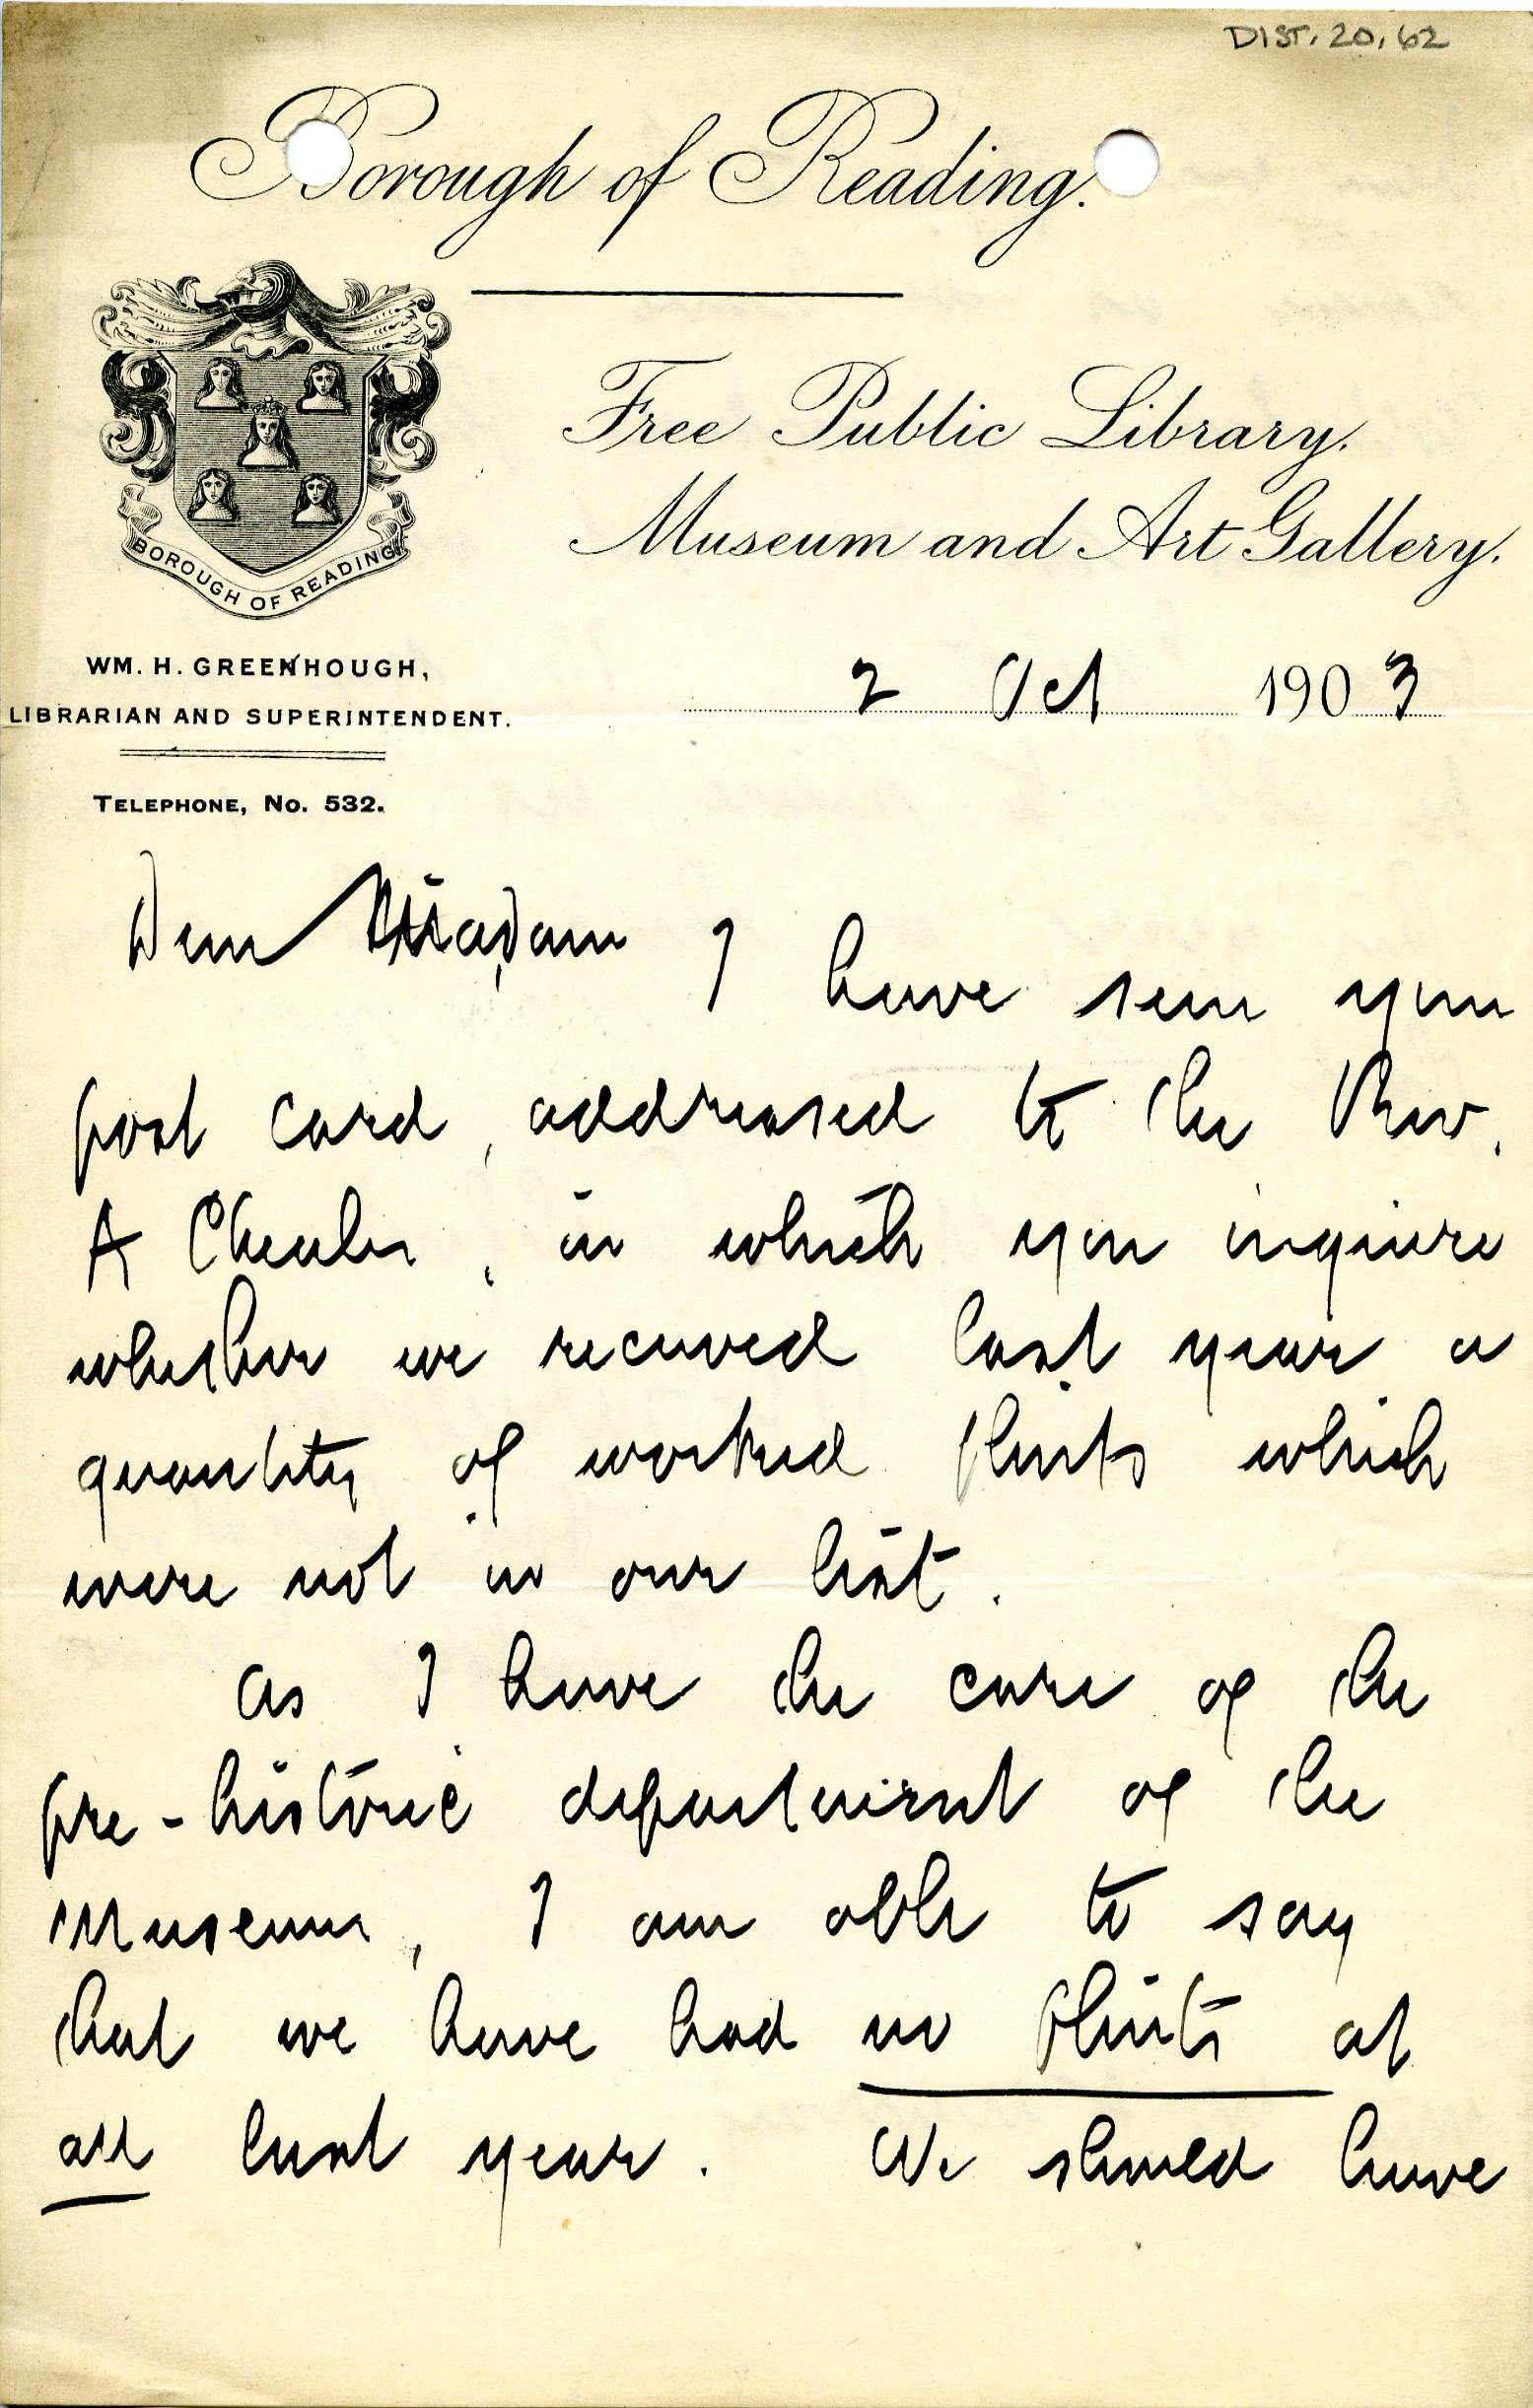 DIST. 20, 62
Borough of Reading.
Free Public Library.
Museum and Art Gallery.
BOROUGH OF READING
WM. H. GREENHOUGH,
LIBRARIAN AND SUPERINTENDENT.
TELEPHONE, NO. 532.
2 Oct 1903
Dear Madam I have seen your
post card, addressed to the Rev.
A , in which you inquire
whether we received last year a
quantity of worked flints which
were not in our list.
As I have the care of the
pre-historic department of the
Museum, I am able to say
that we have had no flints at
all last year. We should have